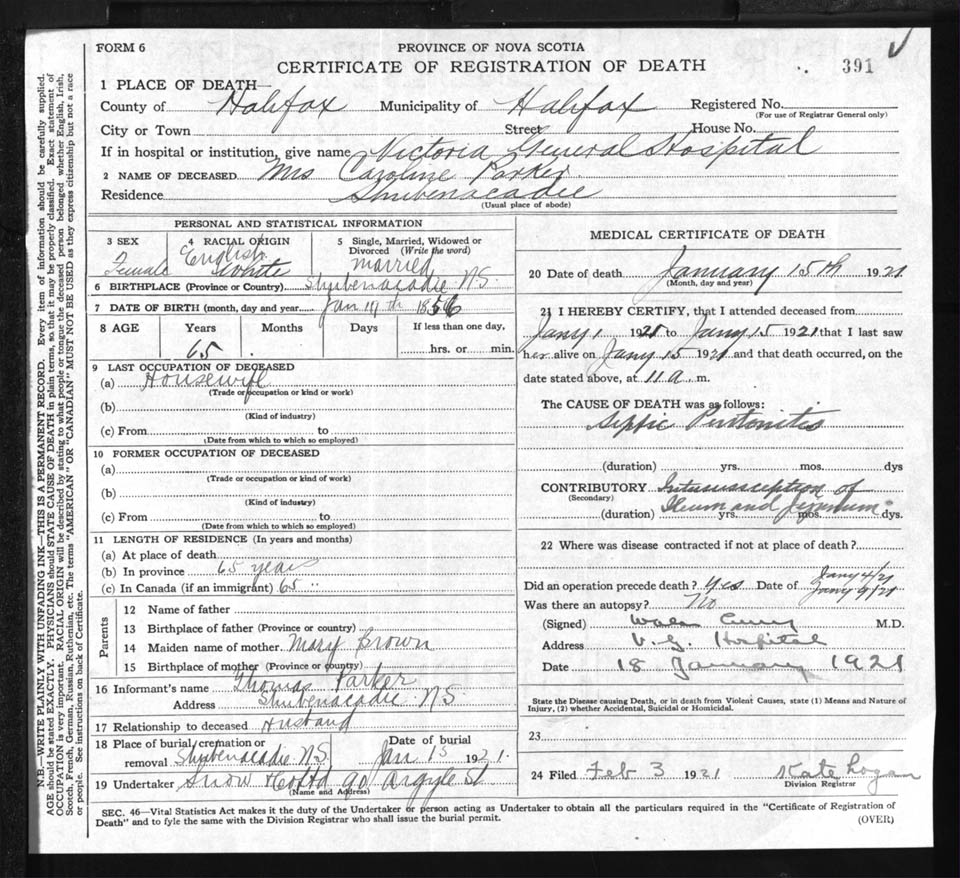 FORM 6
PROVINCE OF NOVA SCOTIA
CERTIFICATE OF REGISTRATION OF DEATH
391
1 PLACE OF DEATH—
County of Halifax Municipality of Halifax Registered No.
(For use of Registrar General only)
City or Town Street House No.
If in hospital or institution, give name Victoria General Hospital
2 NAME OF DECEASED Mrs Caroline Parker
Residence Shubenacadie
(Usual place of abode)
PERSONAL AND STATISTICAL INFORMATION
3 SEX Female
4 RACIAL ORIGIN English White
5 Single, Married, Widowed or Divorced (Write the word) married
6 BIRTHPLACE (Province or Country) Shubenacadie N.S.
7 DATE OF BIRTH (month, day and year Jan 19th 1856
8 AGE Years Months Days If less than one day,
65 hrs. or min.
9 LAST OCCUPATION OF DECEASED
(a) Housewife
(Trade or occupation or kind or work)
(b)
(Kind of industry)
(c) From to
(Date from which to which so employed)
10 FORMER OCCUPATION OF DECEASED
(a)
(Trade or occupation or kind of work)
(b)
(Kind of industry)
(c) From to
(Date from which to which so employed)
11 LENGTH OF RESIDENCE (In years and months)
(a) At place of death
(b) In province 65 years
(c) In Canada (if an immigrant) 65 "
Parents
12 Name of father
13 Birthplace of father (Province or country)
14 Maiden name of mother. Mary Brown
15 Birthplace of mother (Province or country)
16 Informant's name Thomas Parker
Address Shubenacadie N.S
17 Relationship to deceased Husband
18 Place of burial, cremation or removal Shubenacadie N.S.
Date of burial Jan 1921.
19 Undertaker Snow & Co Ltd 90 Argyle St
(Name and Address)
MEDICAL CERTIFICATE OF DEATH
20 Date of death January 15th 1921
(Month, day and year)
21 I HEREBY CERTIFY, that I attended deceased from
Jany 1 1921 to Jany 15 1921 that I last saw
her alive on Jany 15 1921 and that death occurred, on the
date stated above, at 11 a. m.
The CAUSE OF DEATH was as follows:
Septic Peritonitis
(duration) yrs. mos. dys
CONTRIBUTORY Intussusception of
(Secondary)
Ileum and Jejunum
(duration) yrs. mos. dys.
22 Where was disease contracted if not at place of death?
Did an operation precede death? Yes Date of Jany 4/21
Jany 9/21
Was there an autopsy? No
(Signed) M.D.
Address V. G. Hospital
Date 18 January 1921
State the Disease causing Death, or in death from Violent Causes, state (1) Means and Nature of
Injury, (2) whether Accidental, Suicidal or Homicidal.
23
24 Filed Feb 3 1921 Kate Logan
Division Registrar
SEC. 46—Vital Statistics Act makes it the duty of the Undertaker or person acting as Undertaker to obtain all the particulars required in the "Certificate of Registration of
Death" and to fyle the same with the Division Registrar who shall issue the burial permit.
(OVER)
N.B.—WRITE PLAINLY WITH UNFADING INK—THIS IS A PERMANENT RECORD. Every item of information should be carefully supplied.
AGE should be stated EXACTLY. PHYSICIANS should STATE CAUSE OF DEATH in plain terms, so that it may be properly classified. Exact statement of
OCCUPATION is very important. RACIAL ORIGIN will be described by stating to what people or tongue the deceased person belonged whether English, Irish,
Scotch, French, German, Russian, Ruthenian, etc. The terms "AMERICAN" or "CANADIAN" MUST NOT BE USED as they express citizenship but not a race
or people. See instructions on back of Certificate.